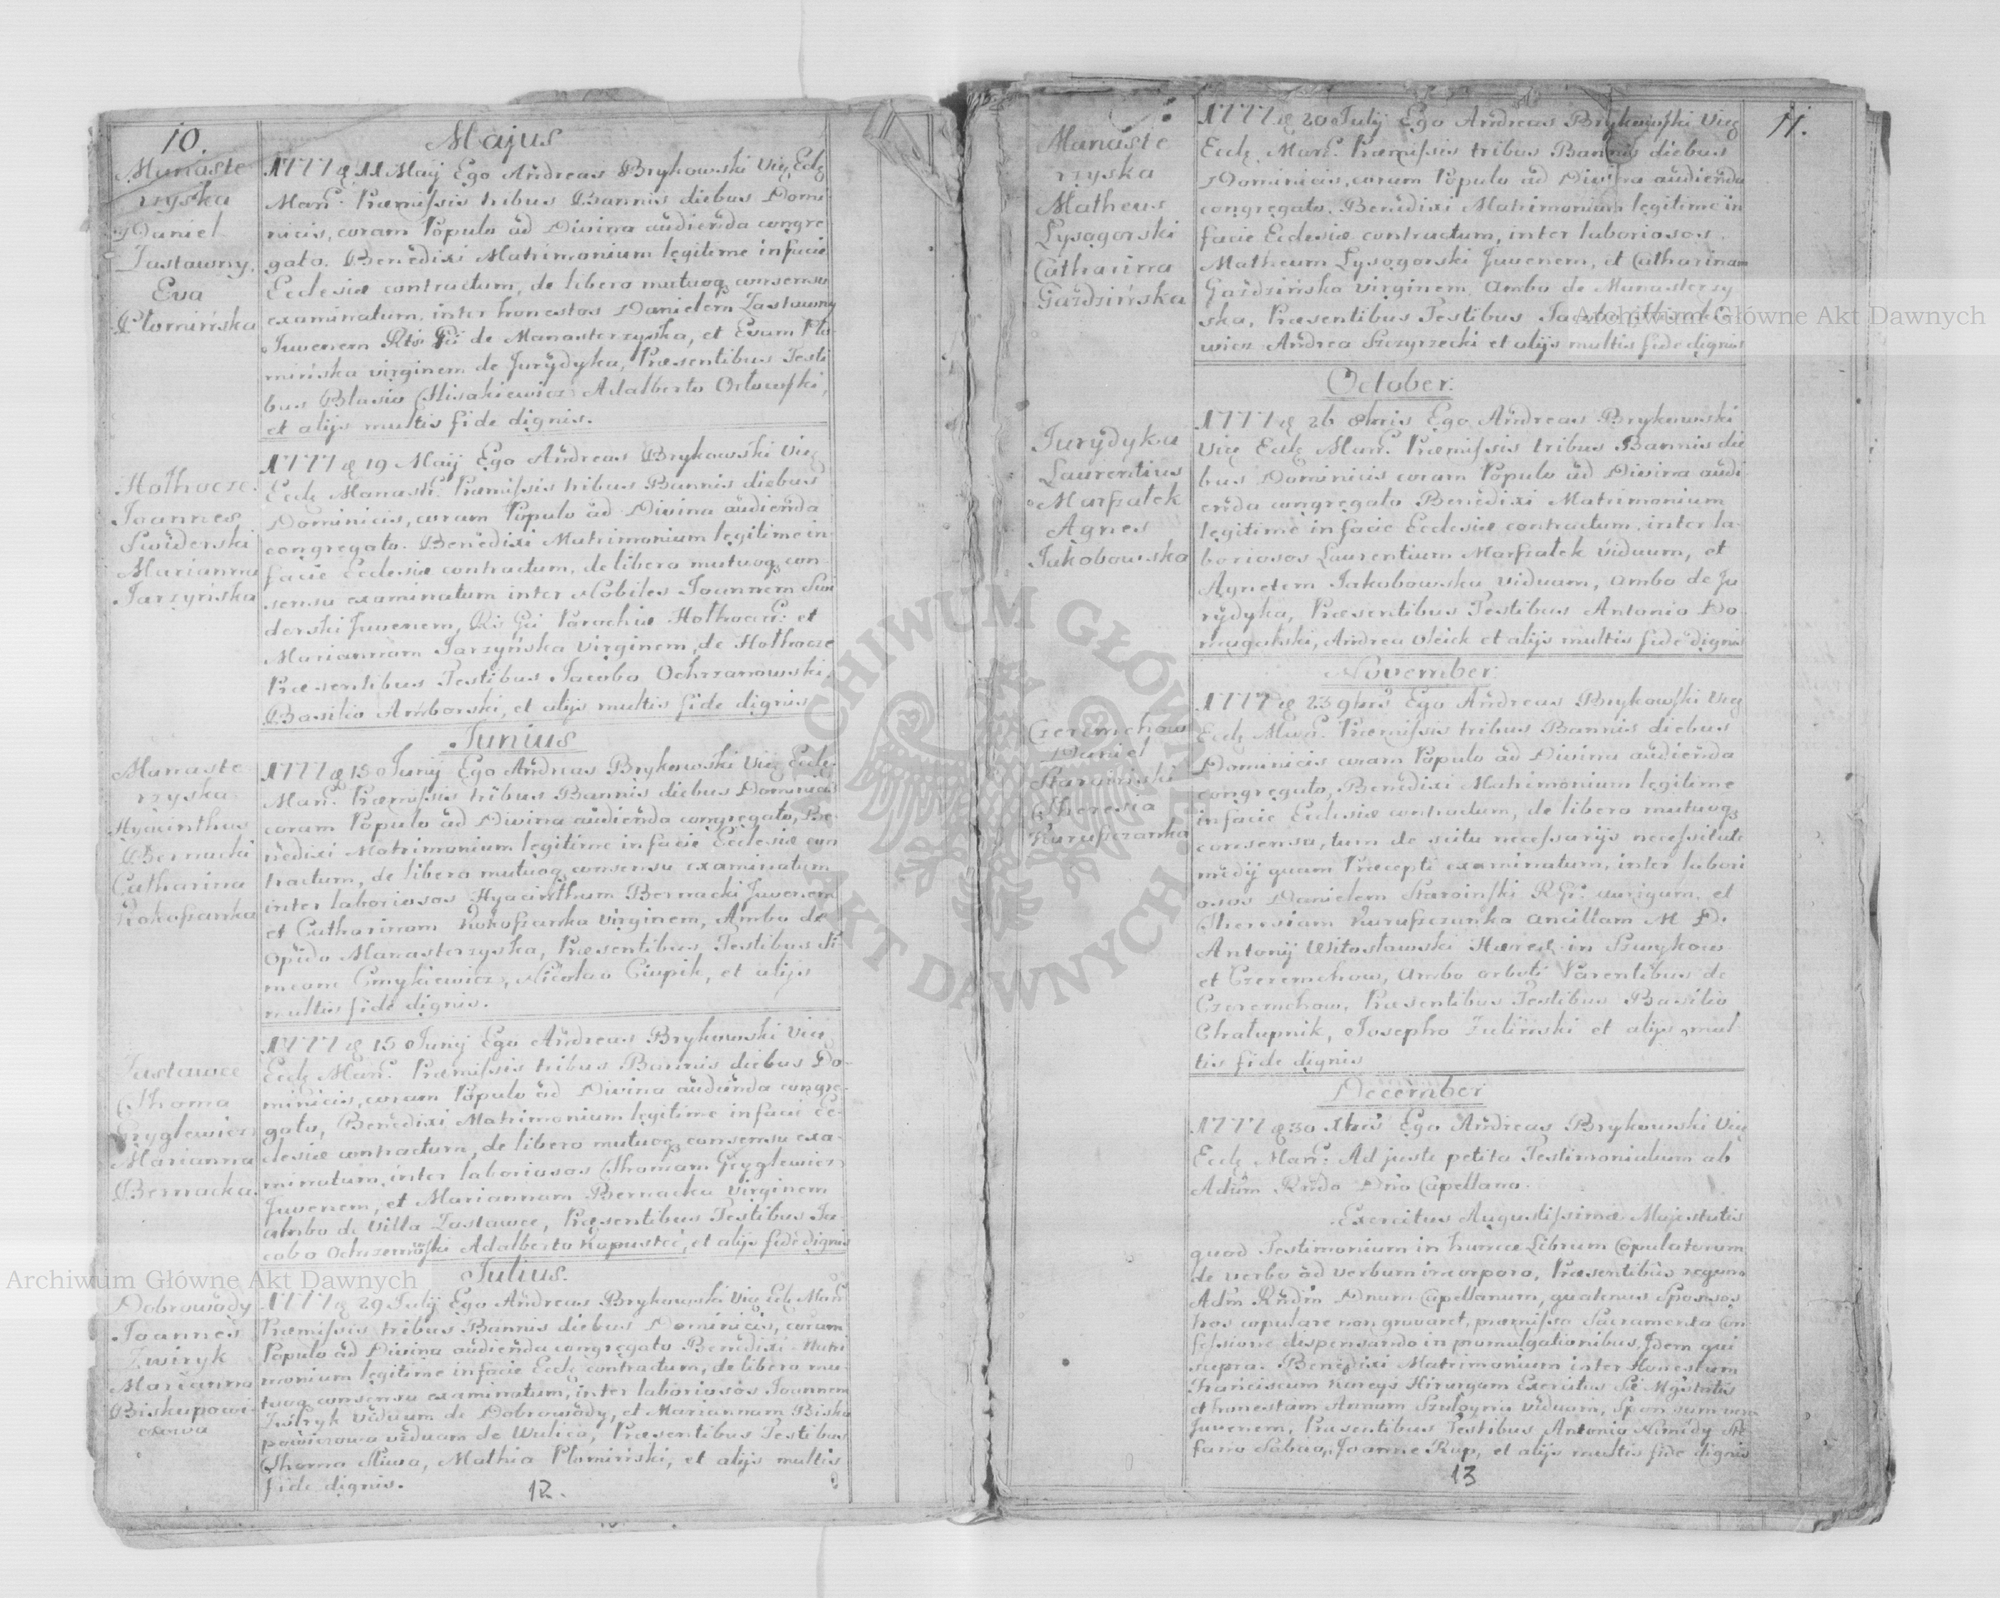 10.
Manaste
rzyska
Daniel
Zastawny
Eva
Płomińska
Majus
1777 d 11 Maij Ego Andreas Brykowski Vic Eccl
Man: Præmissis tribus Bannis diebus Domi
nicis, coram Populo ad Divina audienda congre
gato. Benedixi Matrimonium legitime in facie
Ecclesiæ contractum, de libero mutuoq consensu
examinatum, inter honestos Danielem Zastawny
Juvenem de Manasterzyska, et Evam Pło
mińska virginem de Jurydyka, Præsentibus Testi
bus Blasio Adalberto Orłowski,
et alijs multis fide dignis.
Hołhocze
Joannes
Swiderski
Marianna
Jarzyńska
1777 d 19 Maij Ego Andreas Brykowski Vic
Eccl Manast: Præmissis tribus Bannis diebus
Dominicis, coram Populo ad Divina audienda
congregato. Benedixi Matrimonium legitime in
facie Ecclesiæ contractum, de libero mutuoq con
sensu examinatum inter Nobiles Joannem Swi
derski Juvenem, Parochiæ Hołhocen: et
Mariannam Jarzyńska Virginem, de Hołhocze
Præsentibus Testibus Jacobo Ochrzanowski,
Basilio Amborski, et alijs multis fide dignis
Junius
Manaste
rzyska
Hyacinthus
Bernacki
Catharina
Kokoszanka
1777 d 15 Junij Ego Andreas Brykowski Vic Eccl
Man: Præmissis tribus Bannis diebus Dominicis
coram Populo ad Divina audienda congregato, Be
nedixi Matrimonium legitime in facie Ecclesiæ con
tractum, de libero mutuoq consensu examinatum
inter laboriosos Hyacinthum Bernacki Juvenem
et Catharinam Kokoszanka Virginem, Ambo de
Opido Manasterzyska, Præsentibus, Testibus Si
meone Cmykiewicz, Nicolao Ciupik, et alijs
multis fide dignis.
Zastawce
Thoma
Gryglewicz
Marianna
Bernacka
1777 d 15 Junij Ego Andreas Brykowski Vic
Eccl Man: Præmissis tribus Bannis diebus Do-
minicis, coram Populo ad Divina audienda congre-
gato, Benedixi Matrimonium legitime in facie Ec-
clesiæ contractum, de libero mutuoq consensu exa-
minatum, inter laboriosos Thomam Gryglewicz
Juvenem, et Mariannam Bernacka Virginem
ambo de Villa Zastawce, Præsentibus Testibus Ja
cobo Adalberto et alijs fide dignis
Julius.
Dobrowody
Joannes
Zwiryk
Marianna
Biskupowi
czowa
1777 d 29 Julij Ego Andreas Brykowski Vic Eccl Man:
Præmissis tribus Bannis diebus Dominicis, coram
Populo ad Divina audienda congregato Benedixi Matri
monium legitime in facie Eccl contractum, de libero mu
tuoq consensu examinatum, inter laboriosos Joannem
Zwiryk viduum de Dobrowody, et Mariannam Bisku
powiczowa viduam de Wulica, Præsentibus Testibus
Thoma Sliwa, Mathia Płomiński, et alijs multis
fide dignis.
12.
11.
Manaste
rzyska
Matheus
Lysogorski
Catharina
Gaździńska
1777 d 20 July Ego Andreas Brykowski Vic
Eccl Man: Præmissis tribus Bannis diebus
Dominicis, coram Populo ad Divina audienda
congregato. Benedixi Matrimonium legitime in
facie Ecclesiæ contractum, inter laboriosos
Matheum Lysogorski Juvenem, et Catharinam
Gaździńska Virginem, ambo de Manasterzy
ska, Præsentibus Testibus
wicz Andrea Szczyrzecki et alijs multis fide dignis
October.
Jurydyka
Laurentius
Marszałek
Agnes
Jakobowska
1777 d 26 Ego Andreas Brykowski
Vic Eccl Man: Præmissis tribus Bannis die
bus Dominicis coram Populo ad Divina audi
enda congregato Benedixi Matrimonium
legitime in facie Ecclesiæ contractum, inter la-
boriosos Laurentium Marszałek Viduum, et
Agnetem Jakobowska viduam, ambo de Ju
rydyka, Præsentibus Testibus Antonio Do
mogalski, Andrea et alijs multis fide dignis
November.
Czeremchow
Daniel
Staroiński
Theresia
Karuszczanka
1777 d 23 9bris Ego Andreas Brykowski Vic
Eccl Man: Præmissis tribus Bannis diebus
Dominicis coram Populo ad Divina audienda
congregato, Benedixi Matrimonium legitime
in facie Ecclesiæ contractum, de libero mutuoq
consensu, tum de scitu necessarijs necessitate
medij quam Præcepti examinatum, inter labori
osos Danielem Staroiński aurigam, et
Theresiam Karuszczanka ancillam M. D.
Antonij Witosławski Hæred in Szwykow
et Czeremchow, ambo orbati Parentibus de
Czeremchow, Præsentibus Testibus Basilio
Chałupnik, Josepho Zieliński et alijs mul
tis fide dignis
December
1777 d 30 Xbris Ego Andreas Brykowski Vic
Eccl Man: Ad juste petita Testimonialium ab
Adm Rndo Dno Capellano.
Exercitus Augustissimæ Majestatis
quod Testimonium in hunce Librum Copulatorum
de verbo ad verbum incorporo, Præsentibus
Adm Rndm Dnum Capellanum, quatenus Sponsos
hos copulare non gravaret, præmissa Sacramenta Con
fessione dispensando in promulgationibus, Idem qui
supra. Benedixi Matrimonium inter Honestum
Franciscum Hirurgum Exercitus
et honestam Annam viduam, Sponsum vero
Juvenem, Præsentibus Testibus Antonio
Joanne et alijs multis fide dignis
13
Archiwum Główne Akt Dawnych
Archiwum Główne Akt Dawnych
ARCHIWUM GŁÓWNE AKT DAWNYCH